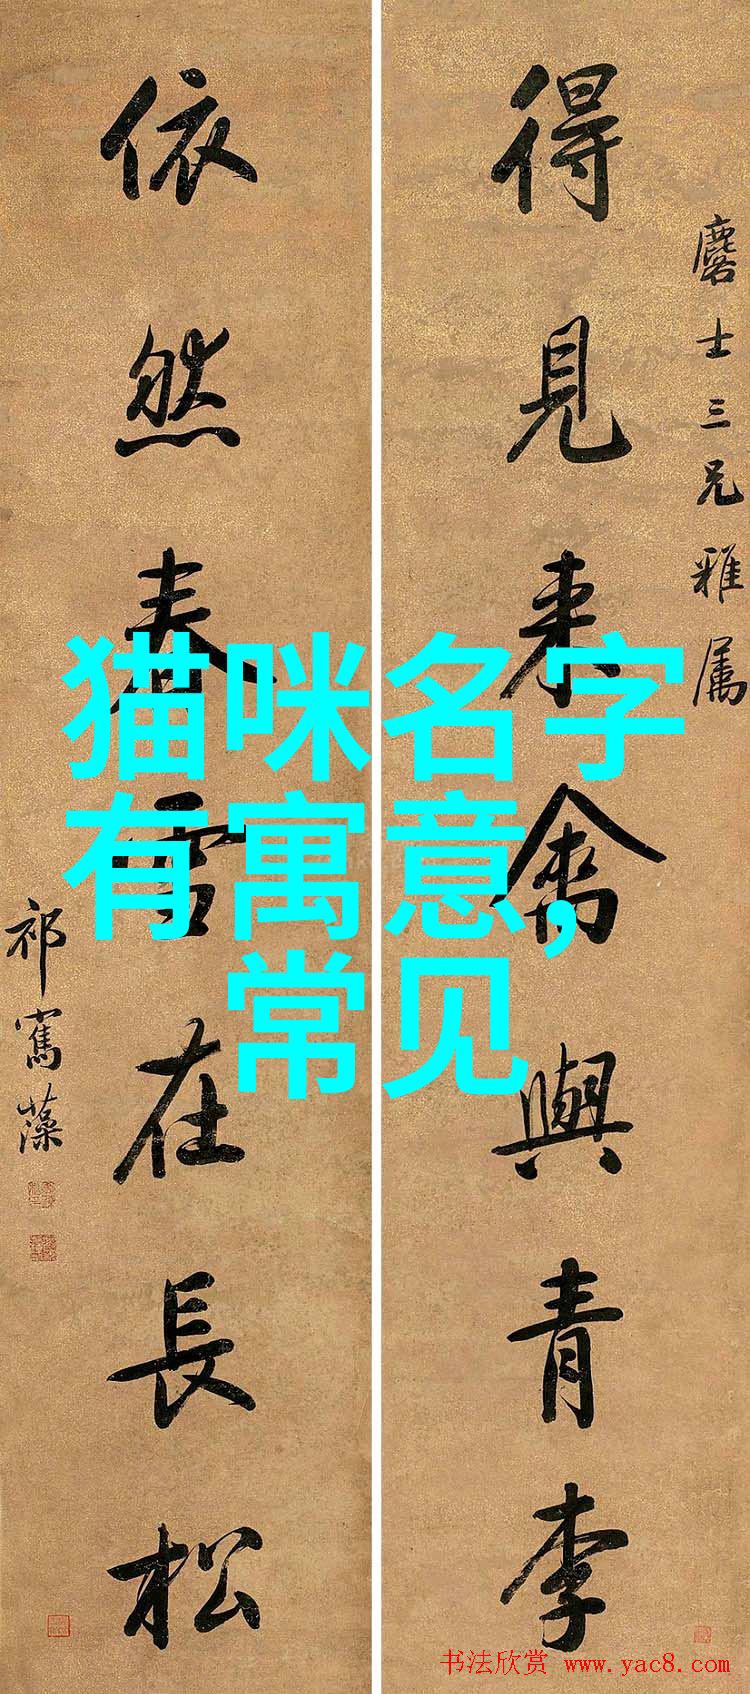 麐士三兄雅属
得見来禽與青李
依然春雪在長松
祁寯藻
猫咪名字
有寓意,
常见
书法欣赏 www.yac8.com